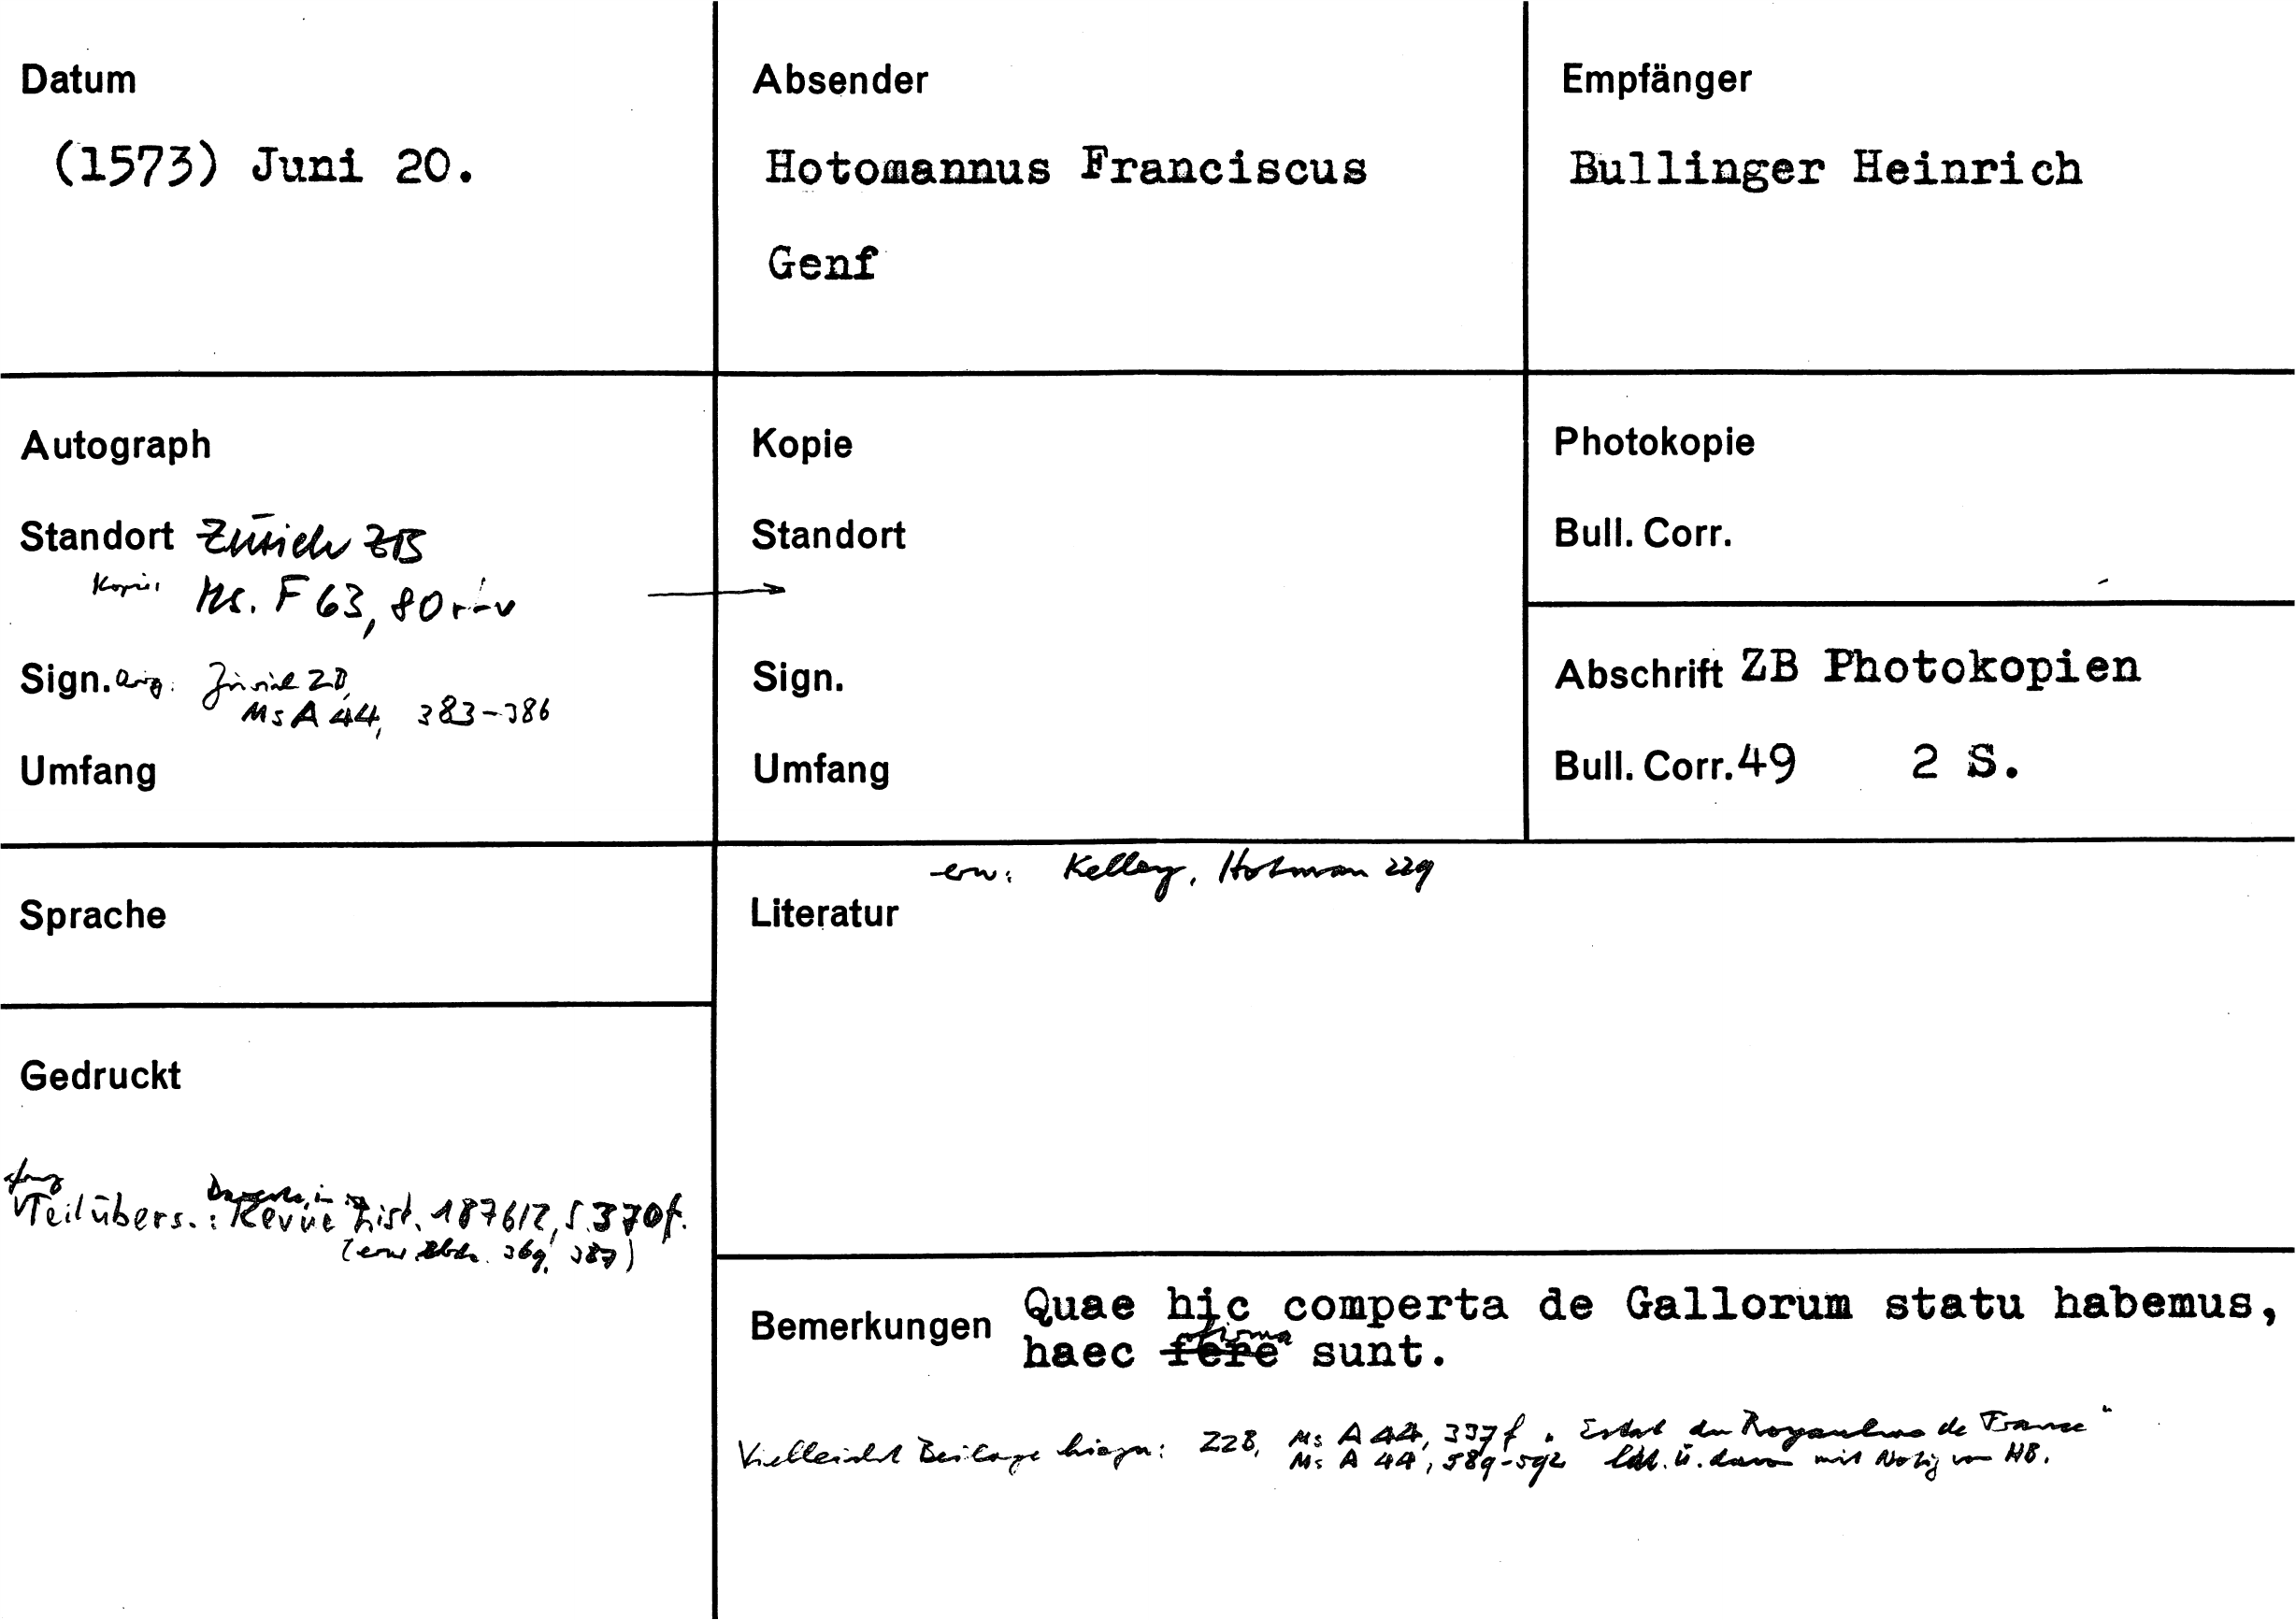 Datum
(1573) Juni 20.
Absender
Hotomannus Franciscus
Genf
Empfänger
Bullinger Heinrich
Autograph
Standort Zürich ZB
Kopie: Ms. F 63, 80 r-v
Sign. Orig: Zürich ZB,
Ms A 44, 383-386
Umfang
Kopie
Standort
Sign.
Umfang
Photokopie
Bull. Corr.
Abschrift ZB Photokopien
Bull. Corr. 49 2 S.
Sprache
erw: Kelley, Hotman 229
Literatur
Gedruckt
Teilübers.: Revue hist. 1876/2, S. 370f.
(erw. ebda. 369, 387)
Bemerkungen Quae hic comperta de Gallorum statu habemus,
haec fere sunt.
Vielleicht Beilage hiezu: ZZB, Ms A 44, 337f „Estat du Royaulme de France"
Ms A 44, 589-592 Ü. davon mit Notiz von HB.